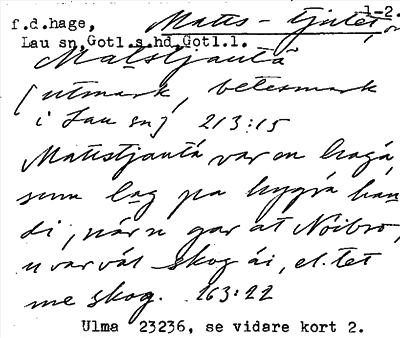 1-2.
f.d.hage, Matts-tjutet,
Lau sn, Gotl.s.hd Gotl.l.
Matstjautä
[utmark, betesmark
i Lau sn] 213:15
Mattstjautá var en hagá,
sum lag pa hygrá han
di, när n gar at Noibro,
n var vát skog ái, el. tet
me skog. 263:22
Ulma 23236, se vidare kort 2.